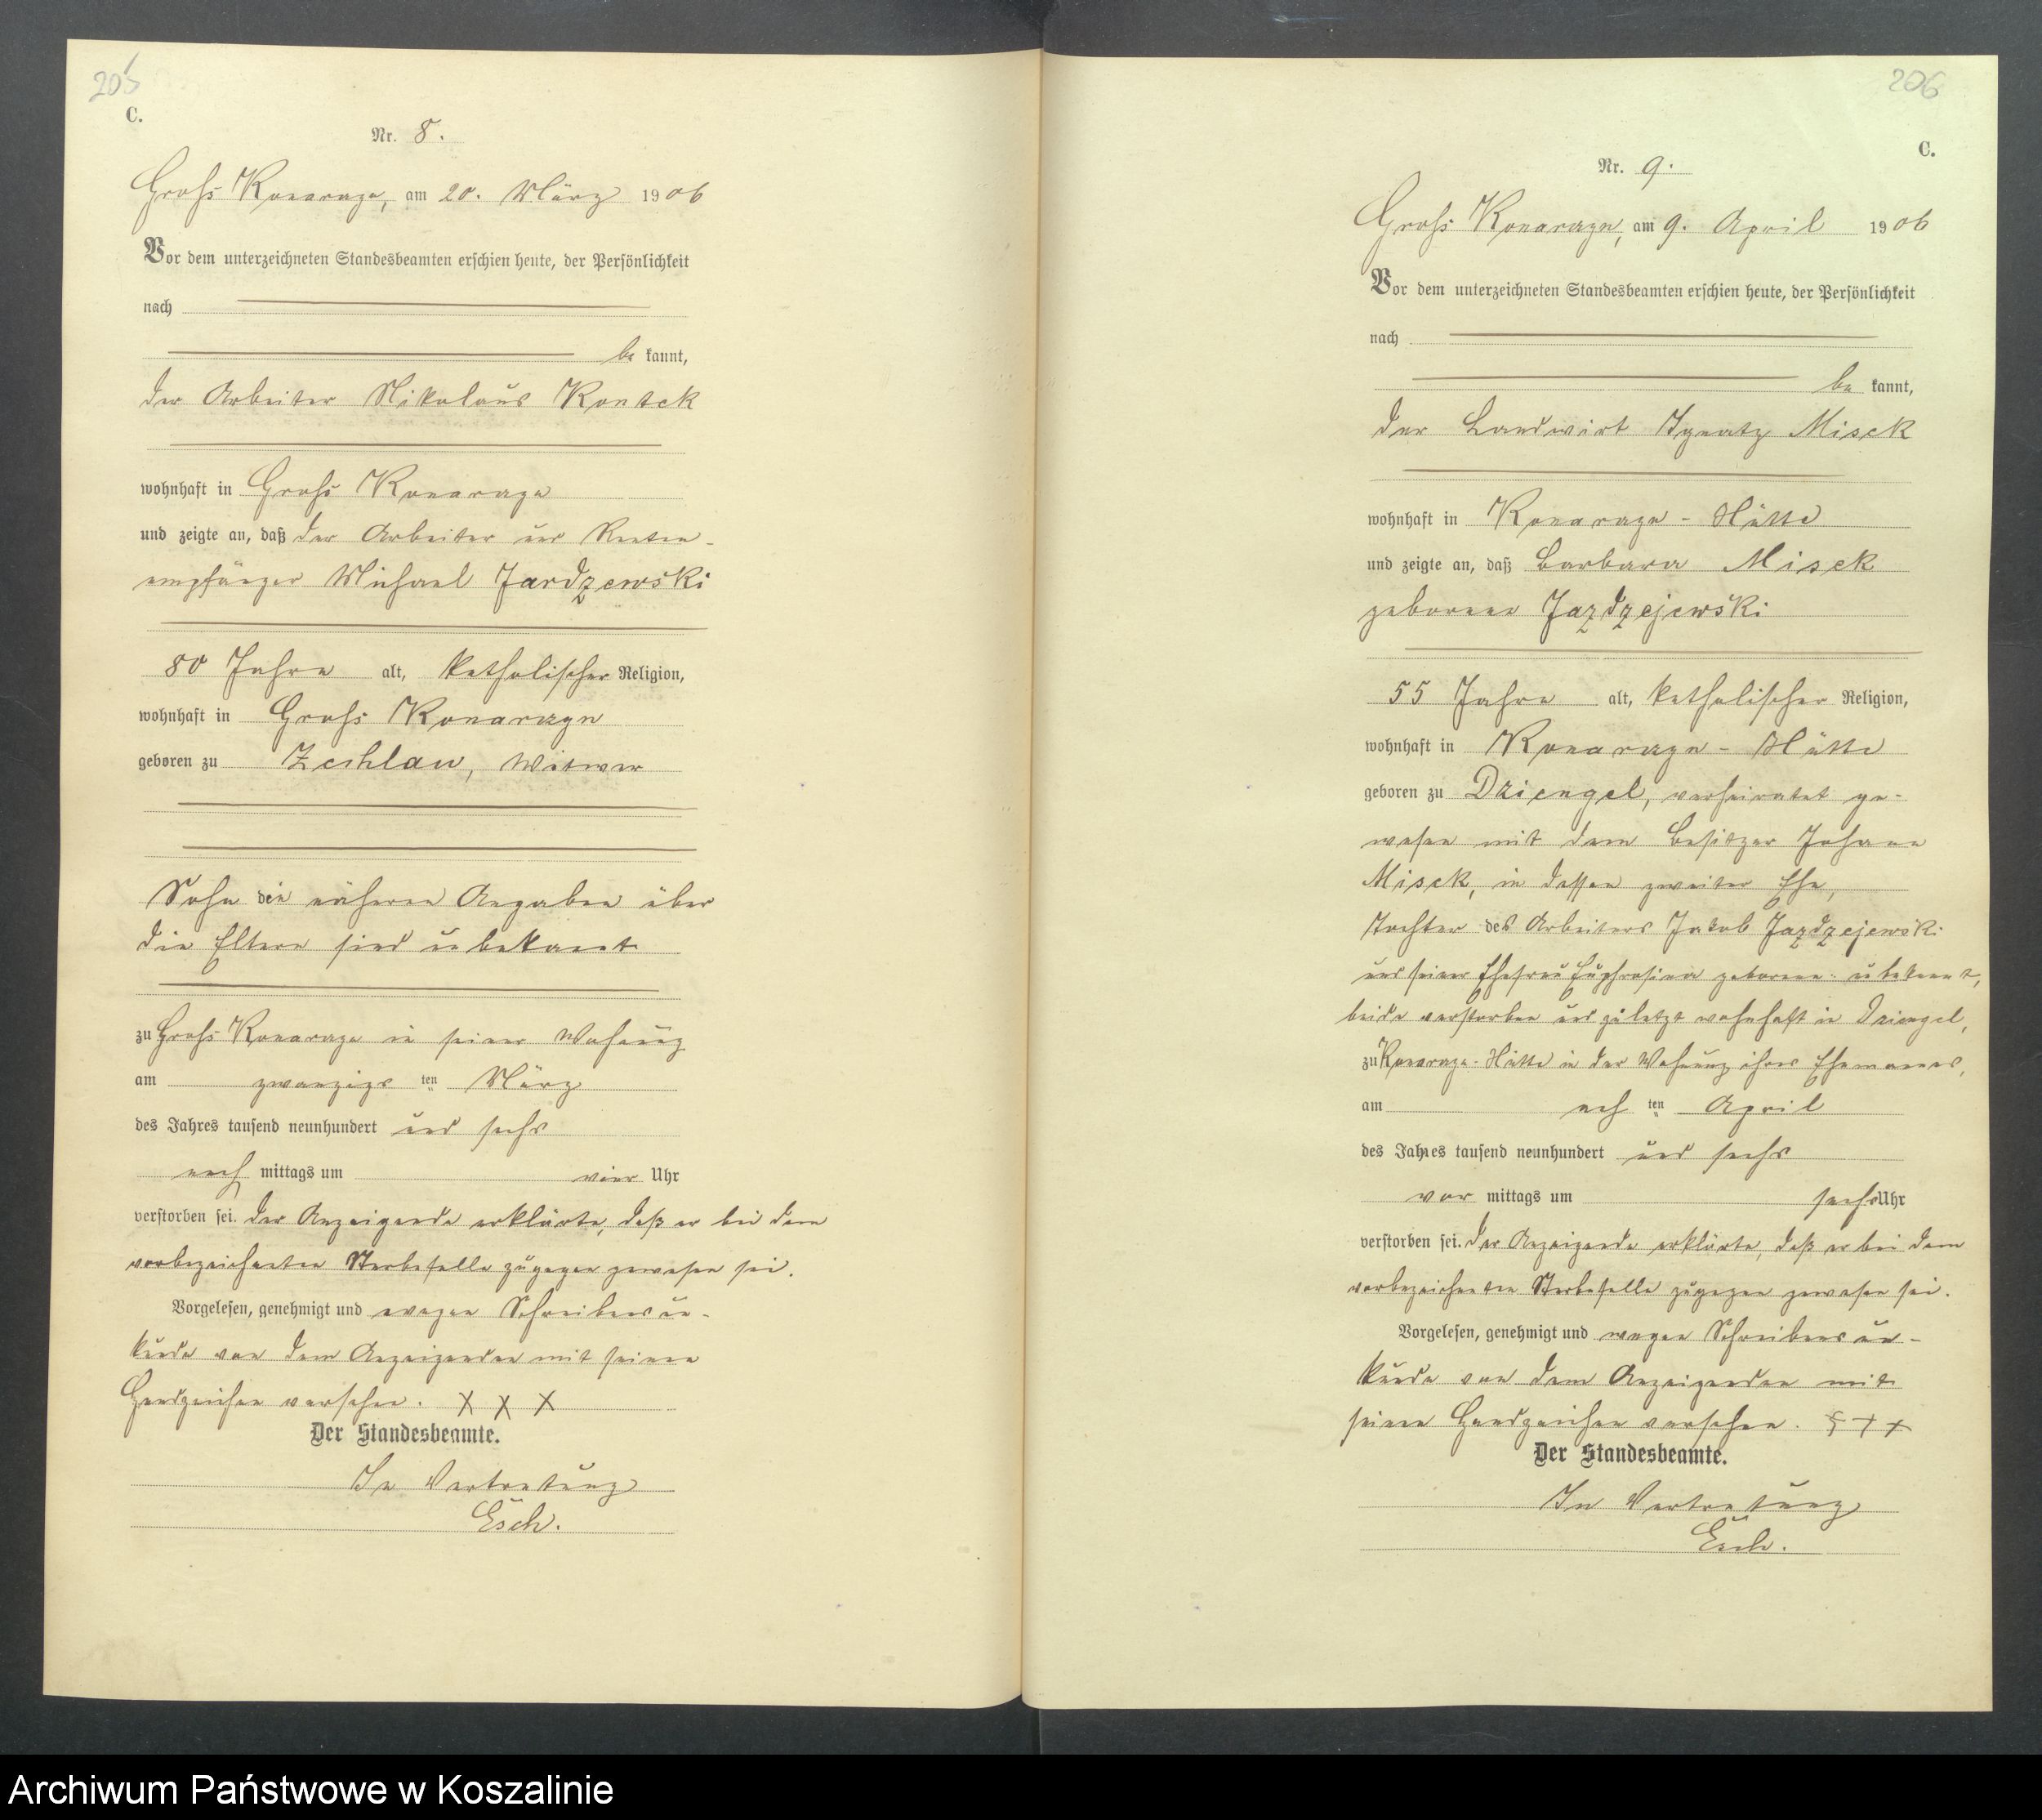 205
C.
Nr. 8.
Groß Konarzyn, am 20. März 1906
Vor dem unterzeichneten Standesbeamten erschien heute, der Persönlichkeit
nach
be kannt,
der Arbeiter Nikolaus Kontek
wohnhaft in Groß Konarzyn
und zeigte an, daß der Arbeiter und Renten-
empfänger Michael Jardzewski
80 Jahre alt, katholischer Religion,
wohnhaft in Groß Konarzyn
geboren zu Zechlau, Witwer
Sohn die näheren Angaben über
die Eltern sind unbekannt
zu Groß Konarzyn in seiner Wohnung
am zwanzigs ten März
des Jahres tausend neunhundert und sechs
nach mittags um vier Uhr
verstorben sei. Der Anzeigende erklärte, daß er bei dem
vorbezeichneten Sterbefalle zugegen gewesen sei.
Vorgelesen, genehmigt und wegen Schreibensun-
kunde von dem Anzeigenden mit seinen
Handzeichen versehen. X X X
Der Standesbeamte.
In Vertretung
Esch.
206
C.
Nr. 9.
Groß Konarzyn, am 9. April 1906
Vor dem unterzeichneten Standesbeamten erschien heute, der Persönlichkeit
nach
be kannt,
der Landwirt Ignatz Misek
wohnhaft in Konarzyn-Hütte
und zeigte an, daß Barbara Misek
geborene Jazdzejewski
55 Jahre alt, katholischer Religion,
wohnhaft in Konarzyn-Hütte
geboren zu Dziengel, verheiratet ge-
wesen mit dem Besitzer Johann
Misek, in dessen zweiter Ehe,
Tochter des Arbeiters Jakob Jazdzejewski
und seiner Ehefrau Euphrosina geborene unbekannt,
beide verstorben und zuletzt wohnhaft in Dziengel,
zu Konarzyn-Hütte in der Wohnung ihres Ehemannes,
am ach ten April
des Jahres tausend neunhundert und sechs
vor mittags um sechs Uhr
verstorben sei. Der Anzeigende erklärte, daß er bei dem
vorbezeichneten Sterbefalle zugegen gewesen sei.
Vorgelesen, genehmigt und wegen Schreibensun-
kunde von dem Anzeigenden mit
seinen Handzeichen versehen. + + +
Der Standesbeamte.
In Vertretung
Esch.
Archiwum Państwowe w Koszalinie